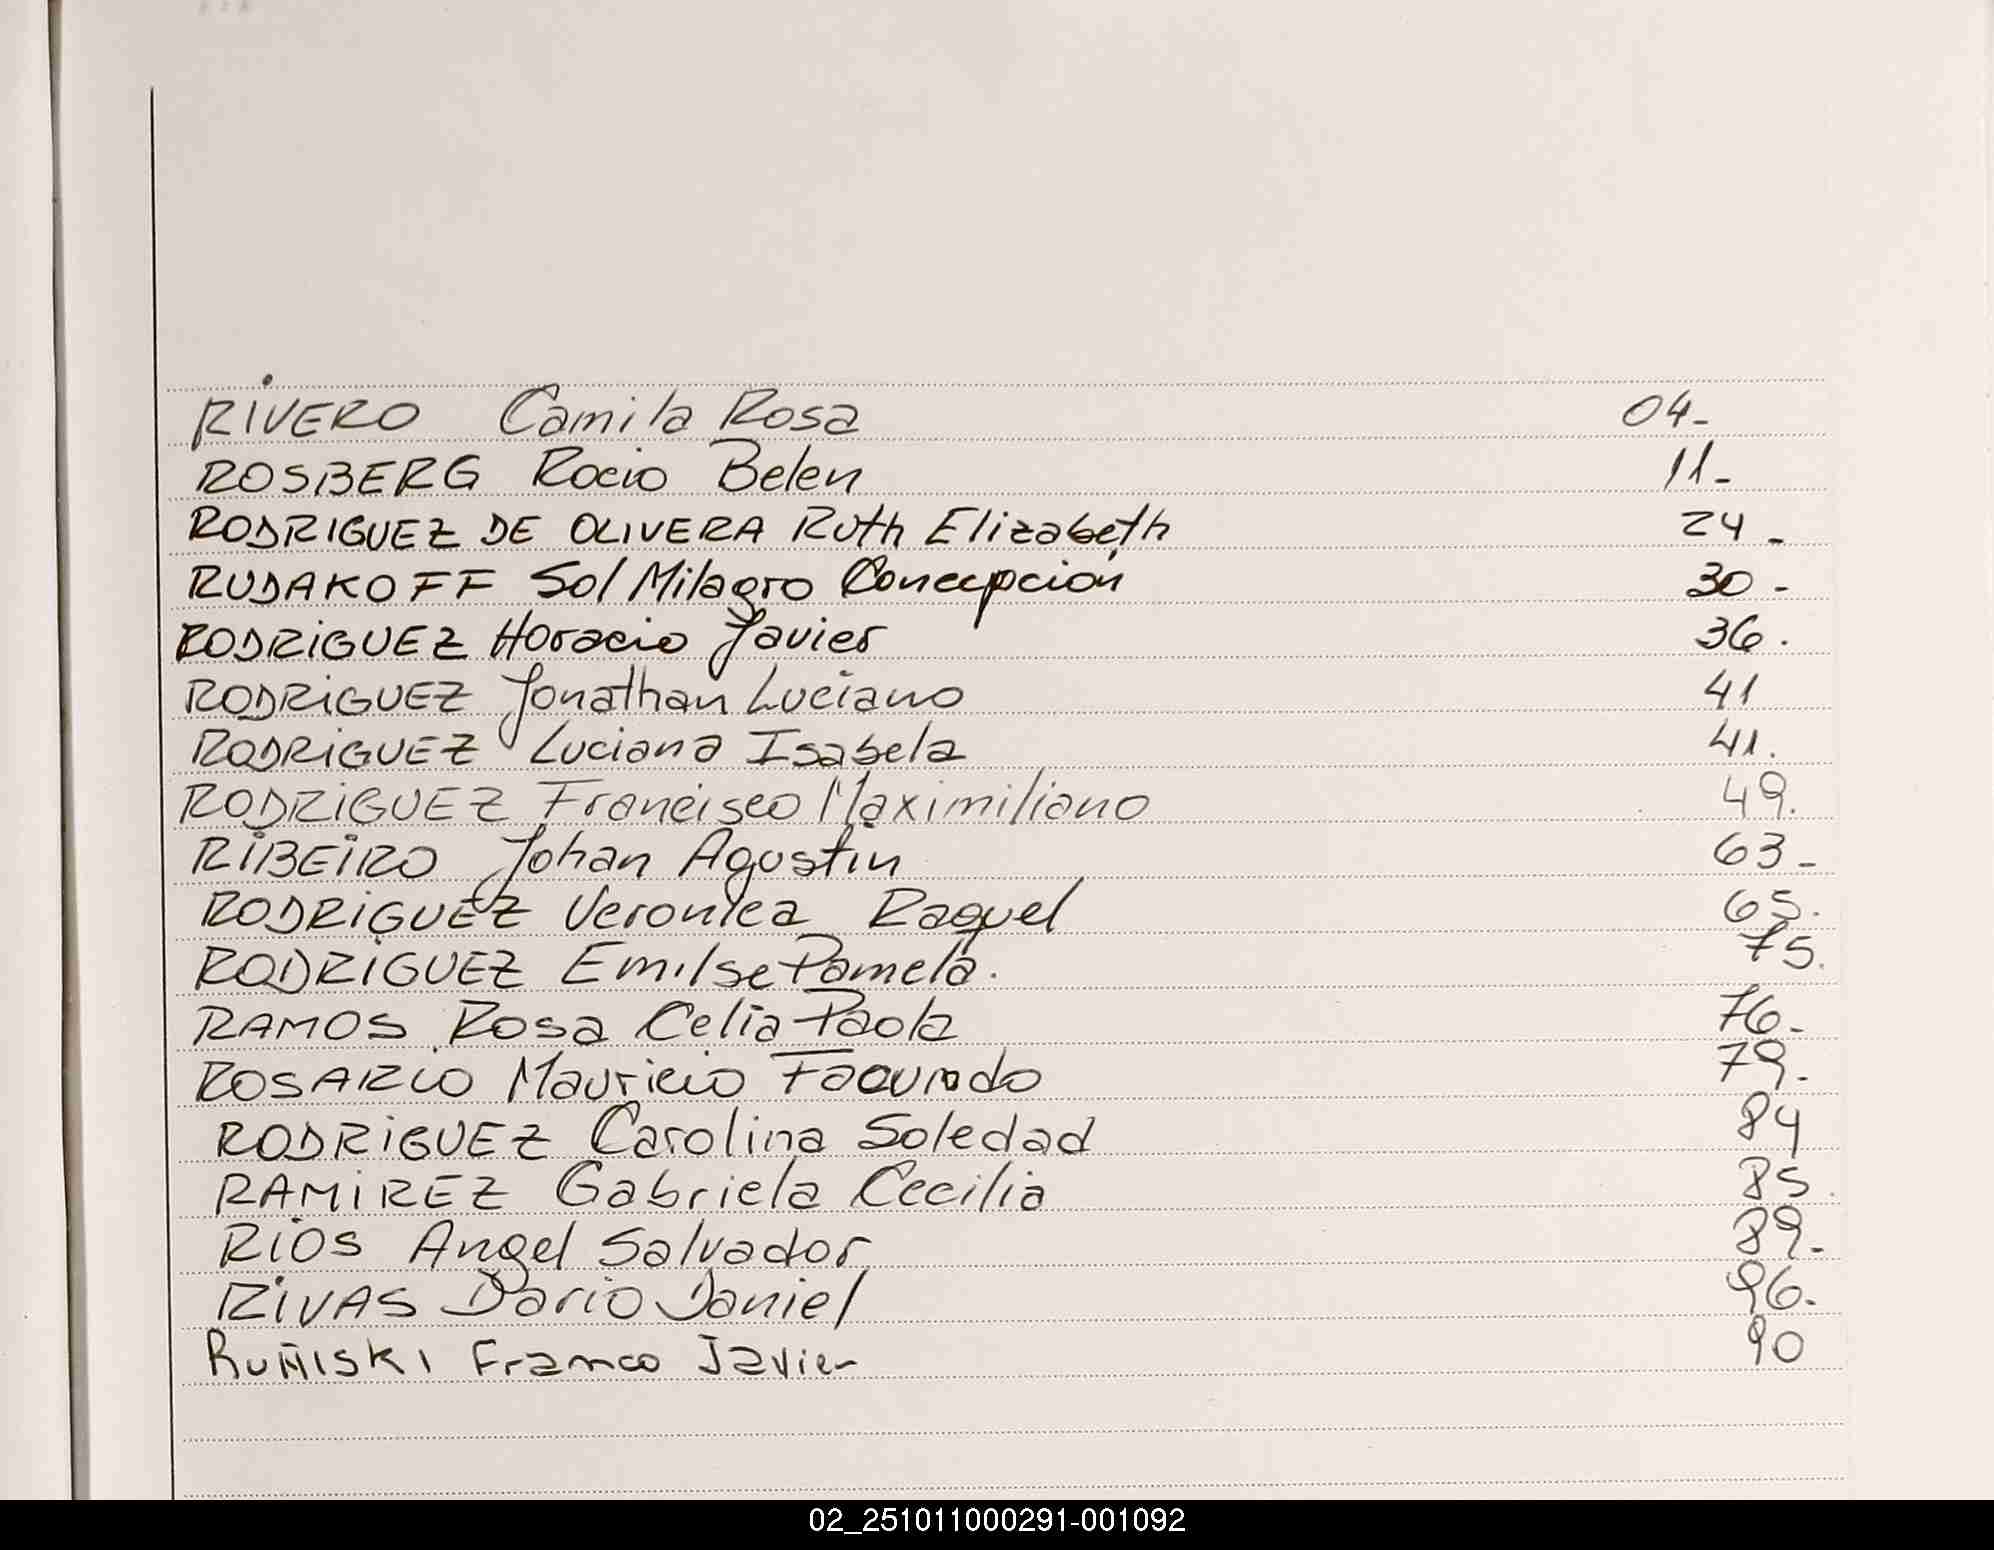 RIVERO Camila Rosa 04-
ROSBERG Rocio Belen 11-
RODRIGUEZ DE OLIVERA Ruth Elizabeth 24-
RUDAKOFF Sol Milagro Concepción 30-
RODRIGUEZ Horacio Javier 36.
RODRIGUEZ Jonathan Luciano 41
RODRIGUEZ Luciana Isabela 41.
RODRIGUEZ Francisco Maximiliano 49.
RIBEIRO Johan Agustin 63-
RODRIGUEZ Veronica Raquel 65.
RODRIGUEZ Emilse Pamela. 75.
RAMOS Rosa Celia Paola 76-
ROSARIO Mauricio Facundo 79.
RODRIGUEZ Carolina Soledad 84
RAMIREZ Gabriela Cecilia 85.
RIOS Angel Salvador 89-
RIVAS Dario Daniel 96.
RUÑISKI Franco Javier 90
02_251011000291-001092